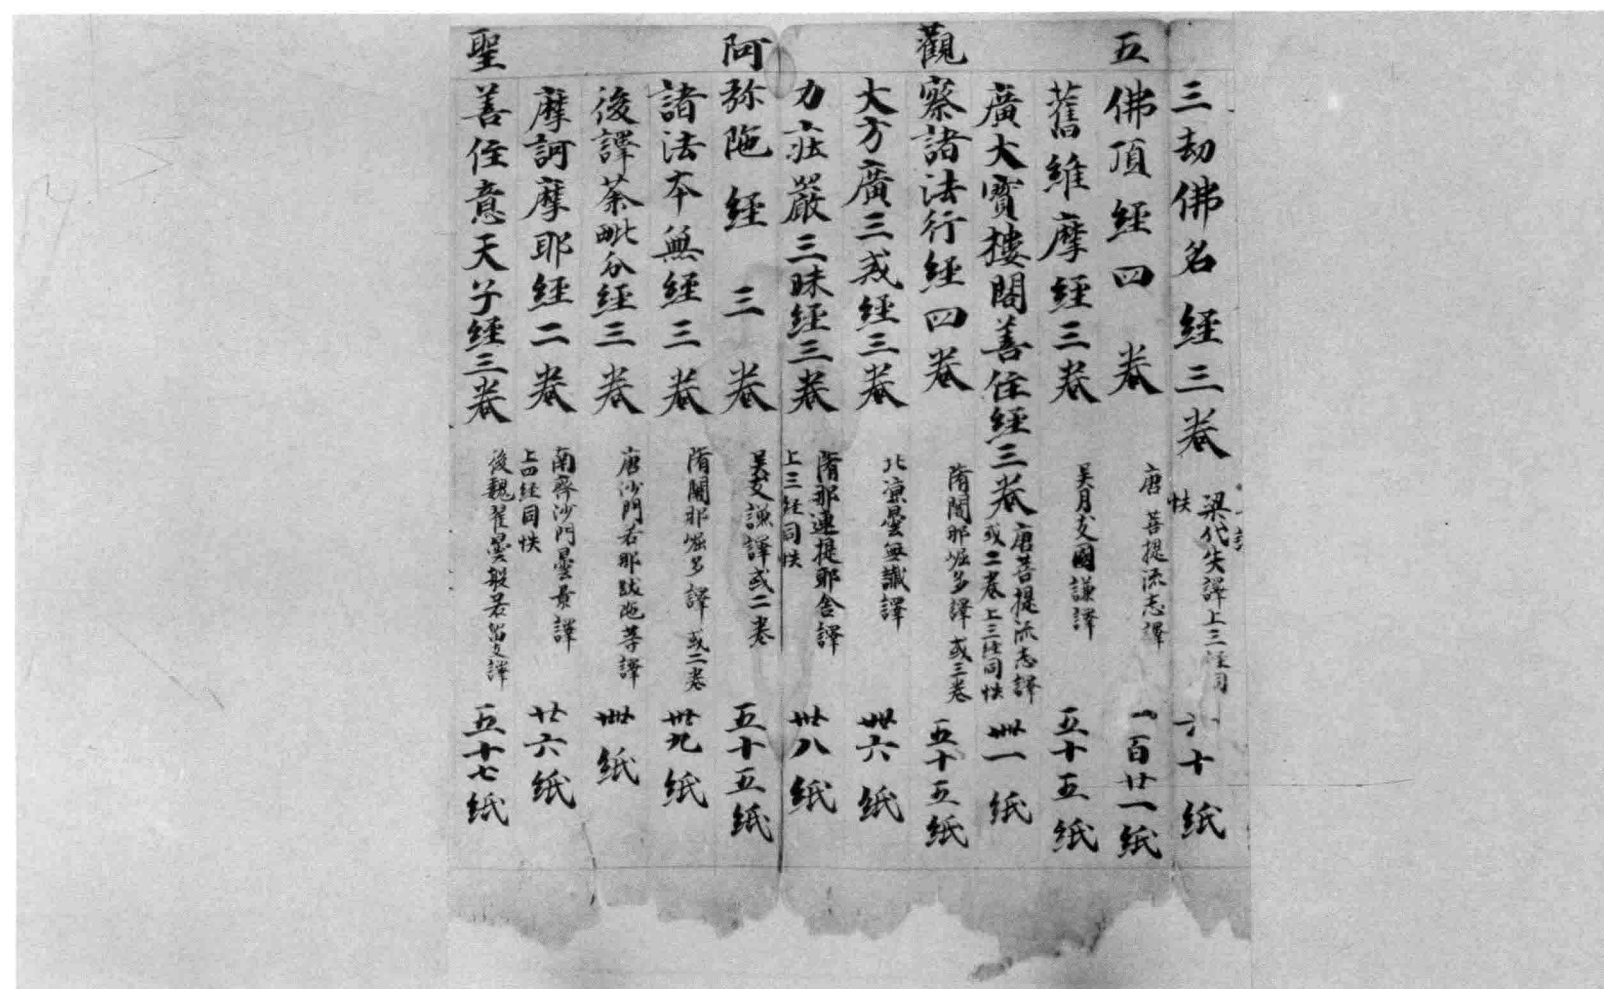 三劫佛名經三卷 梁代失譯上三經同帙 六十紙
五佛頂經四卷 唐菩提流志譯 一百廿一紙
舊維摩經三卷 吴月支國謙譯 五十五紙
廣大寶樓閣善住經三卷 唐菩提流志譯或二卷上三經同帙 卌一紙
觀察諸法行經四卷 隋闍那崛多譯或三卷 五十五紙
大方廣三戒經三卷 北涼曇無讖譯 卌六紙
力莊嚴三昧經三卷 隋那連提耶舍譯上三經同帙 卅八紙
阿弥陁經三卷 吴支謙譯或二卷 五十五紙
諸法夲無經三卷 隋闍那崛多譯或二卷 卅九紙
後譯荼毗分經三卷 唐沙門若那跋陁等譯 卌紙
摩訶摩耶經二卷 南齊沙門曇景譯上四經同帙 廿六紙
聖善住意天子經三卷 後魏瞿曇般若留支譯 五十七紙